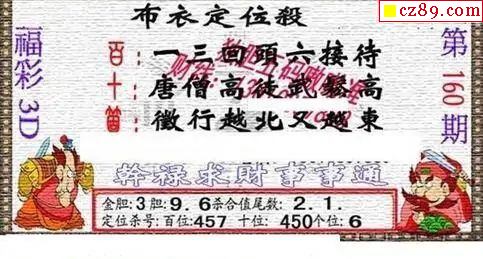 cz89.com
布衣定位殺
福彩3D
第160期
百:一三回頭六接待
十:唐僧高徒武藝高
個:微行越北又越東
幹祿求財事事通
金胆:3胆:9.6杀合值尾数:2.1.
定位杀号:百位:457十位:450个位:6